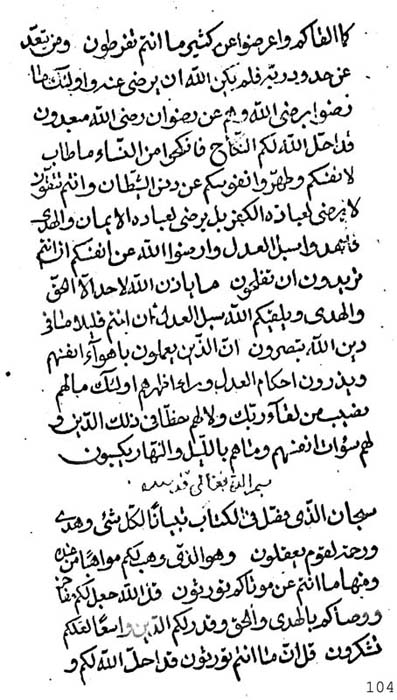 كما القاكم واعرضوا عن كثير ما انتم تفرطون ومن تعد
عن حدود ربه فلم يكن الله ان يرضى عنه واولئك ما
رضوا برضى الله وهم عن رضوان رضى الله مبعدون
قد احل الله لكم النكاح فانكحوا من النساء ما طاب
لانفسكم وطهروا نفوسكم عن دنس الشيطان وانتم تتقون
لا يرضى لعباده الكفر بل يرضى لعباده الايمان والهدى
فاهتدوا سبل العدل وارضوا الله عن انفسكم ان انتم
تريدون ان تفلحون ما ياذن الله لاحد الا الحق
والهدى ويلقيكم الله سبل العدل ان انتم قليلا ما في
دين الله تبصرون ان الذين يعملون باهوآء انفسهم
ويذرون احكام العدل وراء اظهرهم اولئك ما لهم
نصيب من لقآء ربك ولا لهم حظا في ذلك الدين و
لهم سؤات انفسهم وما هم بالليل والنهار يكسبون
بسم الله تعالى
سبحان الذي نزل الكتاب تبيانا لكل شئ وهدى
ورحمة لقوم يعقلون وهو الذي وهب لكم مواهبا من عنده
ومنها ما انتم عن موتاكم تورثون قد الله جعل لكم
ووصاكم بالهدى والحق وقدر لكم الدين واسعا لعلكم
تشكرون قل ان ما انتم تورثون قد احل الله لكم و
104